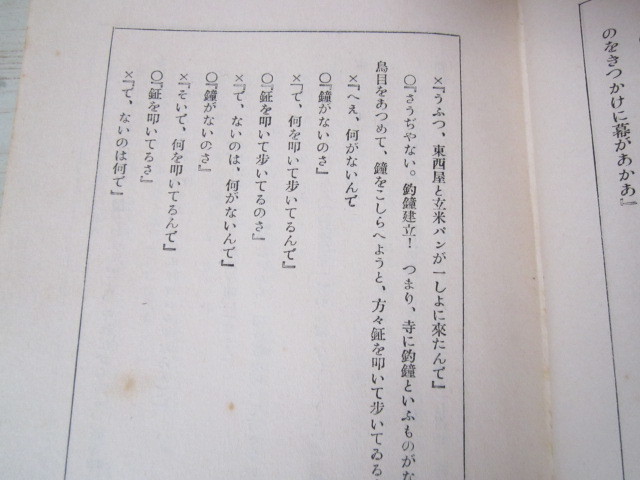 のをきつかけに幕があかあ』
×『うふつ、東西屋と玄米パンが一しよに來たんで』
○『さうぢやない。釣鐘建立！　つまり、寺に釣鐘といふものがな
鳥目をあつめて、鐘をこしらへようと、方々鉦を叩いて歩いてゐる
×『へえ、何がないんで
○『鐘がないのさ』
×『て、何を叩いて歩いてるんで』
○『鉦を叩いて歩いてるのさ』
×『て、ないのは、何がないんで』
○『鐘がないのさ』
×『そいで、何を叩いてるんで』
○『鉦を叩いてるさ』
×『で、ないのは何で』